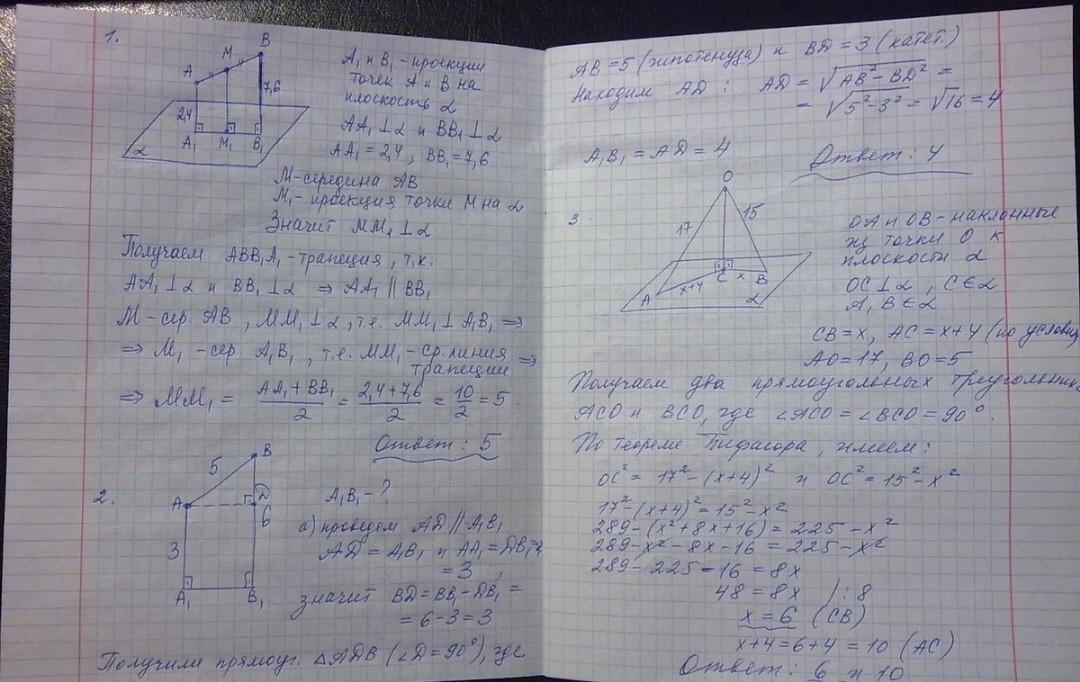 1.
B
M
A
7,6
2,4
A₁ M₁ B₁
α
A₁ и B₁ - проекции
точек A и B на
плоскость α
AA₁ ⊥ α и BB₁ ⊥ α
AA₁ = 2,4, BB₁ = 7,6
M - середина AB
M₁ - проекция точки M на α
Значит MM₁ ⊥ α
Получаем ABB₁A₁ - трапеция, т.к.
AA₁ ⊥ α и BB₁ ⊥ α ⇒ AA₁ || BB₁
M - сер. AB, MM₁ ⊥ α, т.е. MM₁ ⊥ A₁B₁ ⇒
⇒ M₁ - сер. A₁B₁, т.е. MM₁ - ср. линия трапеции ⇒
⇒ MM₁ = (AA₁ + BB₁)/2 = (2,4 + 7,6)/2 = 10/2 = 5.
Ответ: 5
2.
5
B
A
D
6
3
A₁ B₁
A₁B₁ - ?
а) проведем AD || A₁B₁
AD = A₁B₁ и AA₁ = DB₁ =
= 3,
значит BD = BB₁ - DB₁ =
= 6 - 3 = 3
Получили прямоуг. △ADB (∠D = 90°), где
AB = 5 (гипотенуза) и BD = 3 (катет.)
Находим AD: AD = √(AB² - BD²) =
= √(5² - 3²) = √16 = 4
A₁B₁ = AD = 4
Ответ: 4
3.
O
17
15
C x B
A x+4
α
OA и OB - наклонные
из точки O к
плоскости α
OC ⊥ α, C ∈ α
A, B ∈ α
CB = x, AC = x+4 (по услови
AO = 17, BO = 5
Получаем два прямоугольных треугольник
ACO и BCO, где ∠ACO = ∠BCO = 90°.
По теореме Пифагора, имеем:
OC² = 17² - (x+4)² и OC² = 15² - x²
17² - (x+4)² = 15² - x²
289 - (x² + 8x + 16) = 225 - x²
289 - x² - 8x - 16 = 225 - x²
289 - 225 - 16 = 8x
48 = 8x | :8
x = 6 (CB)
x+4 = 6+4 = 10 (AC)
Ответ: 6 и 10